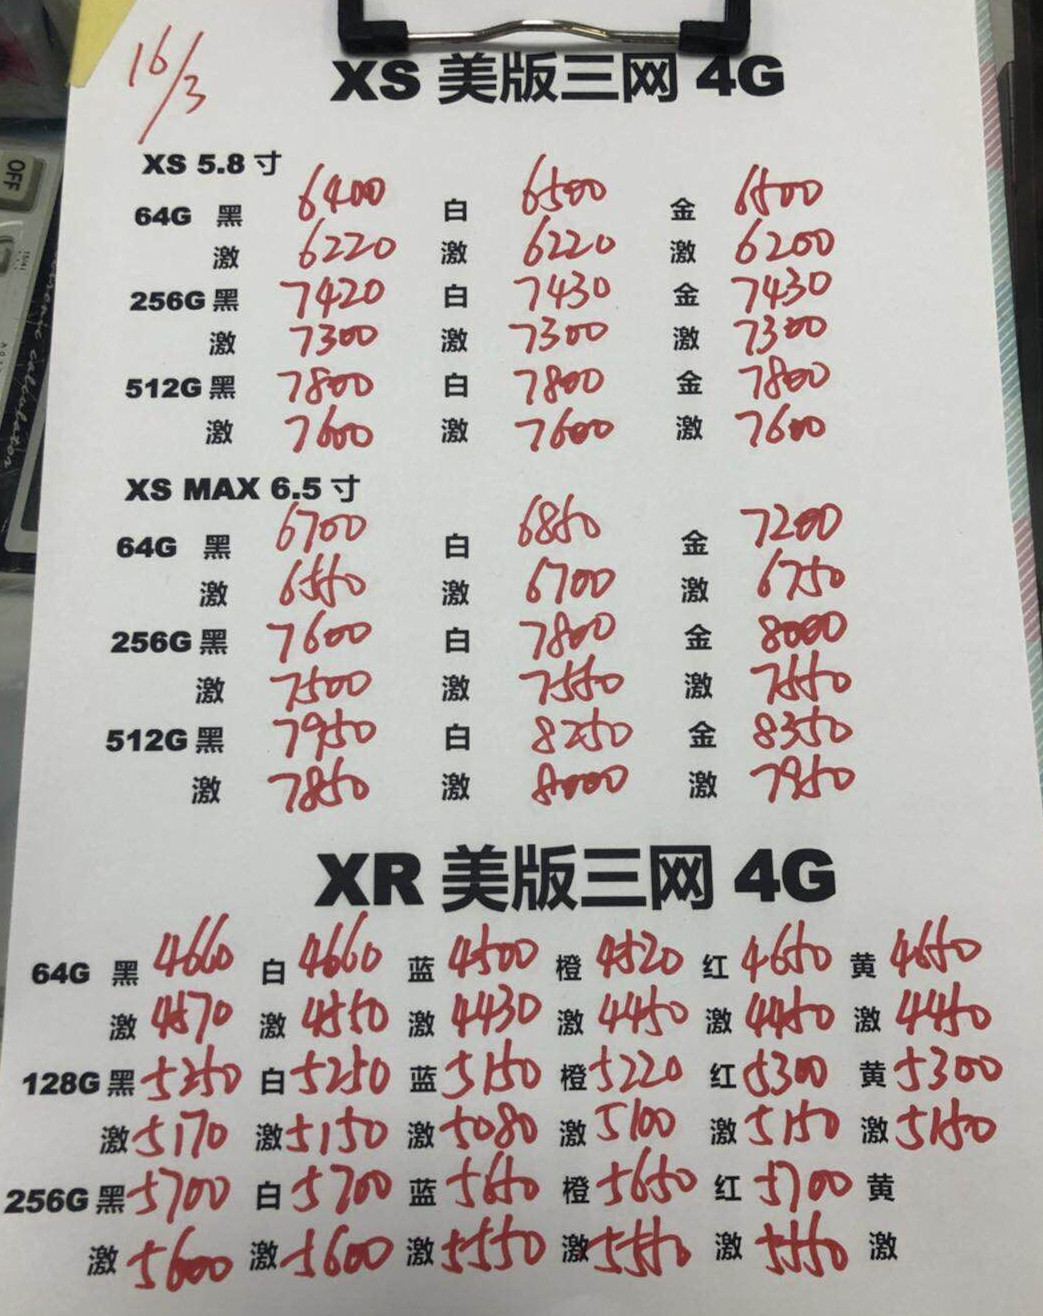 16/3
XS 美版三网 4G
XS 5.8 寸
64G 黑 6400 白 6500 金 6500
激 6220 激 6220 激 6200
256G 黑 7420 白 7430 金 7430
激 7300 激 7300 激 7300
512G 黑 7800 白 7800 金 7800
激 7600 激 7600 激 7600
XS MAX 6.5 寸
64G 黑 6700 白 6850 金 7200
激 6550 激 6700 激 6750
256G 黑 7600 白 7800 金 8000
激 7500 激 7550 激 7550
512G 黑 7950 白 8250 金 8350
激 7850 激 8000 激 7950
XR 美版三网 4G
64G 黑 4660 白 4660 蓝 4500 橙 4520 红 4650 黄 4650
激 4570 激 4550 激 4430 激 4450 激 4450 激 4450
128G 黑 5250 白 5250 蓝 5150 橙 5220 红 5300 黄 5300
激 5170 激 5150 激 5080 激 5100 激 5150 激 5150
256G 黑 5700 白 5700 蓝 5650 橙 5650 红 5700 黄
激 5600 激 5600 激 5550 激 5550 激 5550 激
OFF
calculator